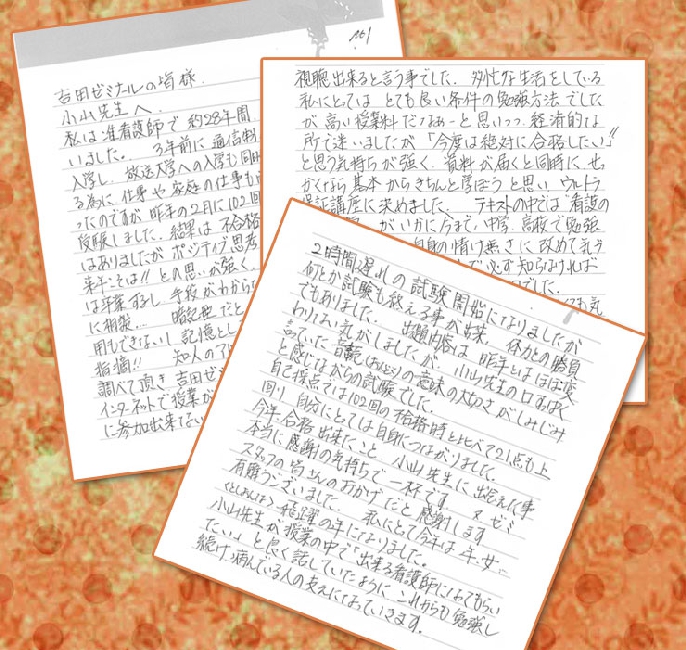 No1
吉田ゼミナールの皆様
小山先生へ
私は准看護師で約28年間
いました。3年前に通信制
入学し、放送大学への入学も同時
る為に仕事や家庭の仕事も
ったのですが昨年の2月に102回
受験しました。結果は不合格
はありましたがポジティブ思考
来年こそは!!との思いが強く
は卒業するし 手段がわからな
に相談… 暗記だと
用もできないし 記憶とし
指摘!! 知人の
調べて頂き 吉田ゼミ
インターネットで授業が
に参加出来ない
視聴出来ると言う事でした。多忙な生活をしている
私にとっては とても良い条件の勉強方法でした
が 高い授業料だなあーと思いつつ 経済的な
所で迷いましたが「今度は絶対に合格したい!!」
と思う気持ちが強く 資料が届くと同時に、せ
かくなら基本からきちんと学ぼうと思い ウルトラ
保証講座に決めました。テキストの中では 看護の
がいかに今まで、中学、高校で勉強
自身の情け無さに改めて
で必ず知らなければ
でした。
も気
2時間遅れの試験開始になりましたが
何とか試験も終える事が出来、休分との勝負
でもありました。出題内容は 昨年とはほぼ変
わりない気がしましたが、小山先生の口すっぱく
言っていた 言葉の意味の大切さがしみじみ
と感じながらの試験でした。
自己採点では102回の不合格時と比べて21点も上
回り 自分にとっては自身につながりました。
今年合格出来たこと 小山先生に出会えた事
本当に感謝の気持ちで一杯です 又、ゼミ
スタッフの皆さんのおかげだと感謝します
有難うございました。私にとって今年は年女…
飛躍の年になりました。
小山先生が授業の中で「出来る看護師になってもらい
たい。」と良く話していたように これからも勉強し
続け、病んでいる人の支えになっていきます。